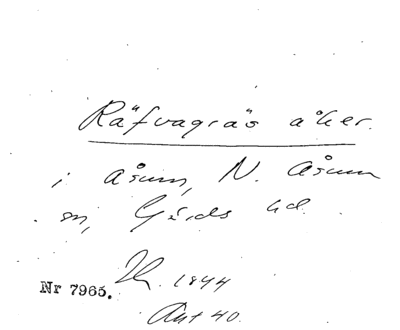 Räfvagräs åker.
i Åsum, N. Åsum
sn, Gärds hd.
1844
Nr 7965.
Akt 40.